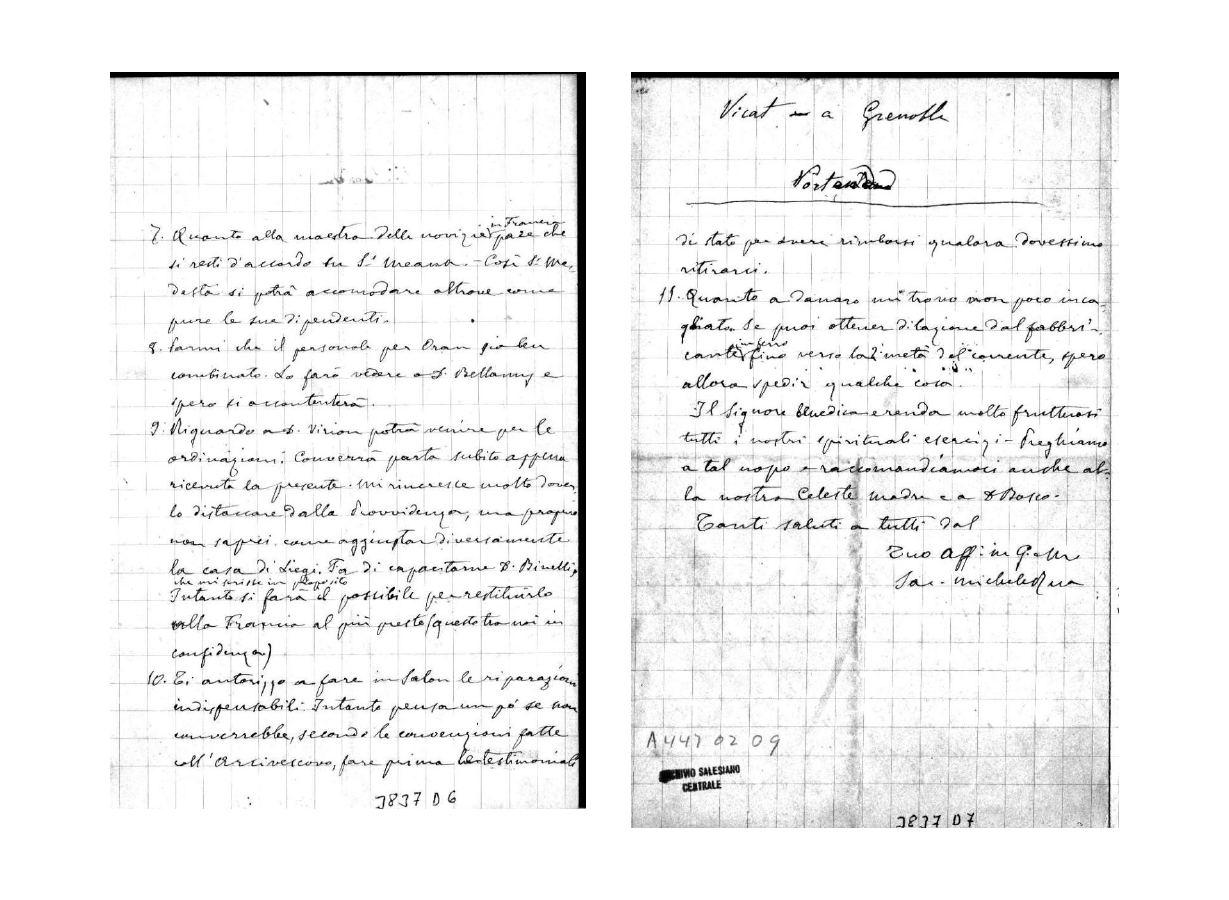 7. Quanto alla maestra delle novizie in Francia pare che
si resti d'accordo su Sr Meana. - Così Sr Mo-
desta si potrà accomodare altrove come
pure le sue dipendenti.
8. Parmi che il personale per Oran sia ben
combinato. Lo farò vedere a D. Bellamy e
spero si accontenterà.
9. Riguardo a D. Virion potrà venire per le
ordinazioni. Converrà parta subito appena
ricevuta la presente. Mi rincresce molto dover-
lo distaccare dalla Provvidenza, ma proprio
non saprei come aggiustar diversamente
la casa di Liegi. Fa di capacitarne D. Binelli,
che mi scrisse in proposito
Intanto si farà il possibile per restituirlo
alla Francia al più presto (questo tra noi in
confidenza)
10. Ti autorizzo a fare in Salon le riparazioni
indispensabili. Intanto pensa un pò se non
converrebbe, secondo le convenzioni fatte
coll'Arcivescovo, fare prima le testimoniali
J837 D6
Vicat a Grenoble
di stato per avere rimborsi qualora dovessimo
ritirarci.
11. Quanto a danaro mi trovo non poco inca-
gliato. Se puoi ottener dilazione dal fabbri-
cante fino verso la 2a metà del corrente, spero
allora spedir qualche cosa.
Il Signore benedica e renda molto fruttuosi
tutti i nostri spirituali esercizi - Preghiamo
a tal uopo e raccomandiamoci anche al-
la nostra Celeste Madre e a D Bosco.
Tanti saluti a tutti dal
Tuo Aff. in G. e M.
Sac. Michele Rua
A447 02 09
ARCHIVIO SALESIANO
CENTRALE
J837 D7